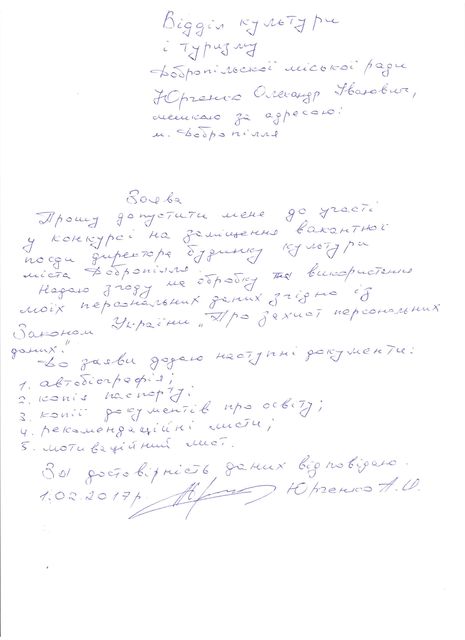 Відділ культури
і туризму
Добропільської міської ради
Юрченко Олександр Іванович,
мешкаю за адресою:
м. Добропілля
Заява
Прошу допустити мене до участі
у конкурсі на заміщення вакантної
посади директора будинку культури
міста Добропілля.
Надаю згоду на обробку та використання
моїх персональних даних згідно із
Законом України „Про захист персональних
даних."
До заяви додаю наступні документи:
1. автобіографія;
2. копія паспорту;
3. копії документів про освіту;
4. рекомендаційні листи;
5. мотиваційний лист.
За достовірність даних відповідаю.
1.02.2017р. Юрченко А.И.